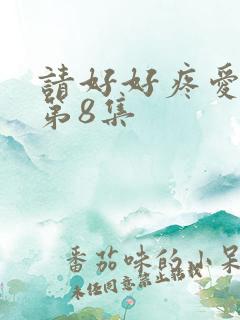 請好好疼愛
第8集
番茄味的小呆
未任同意禁止轉載